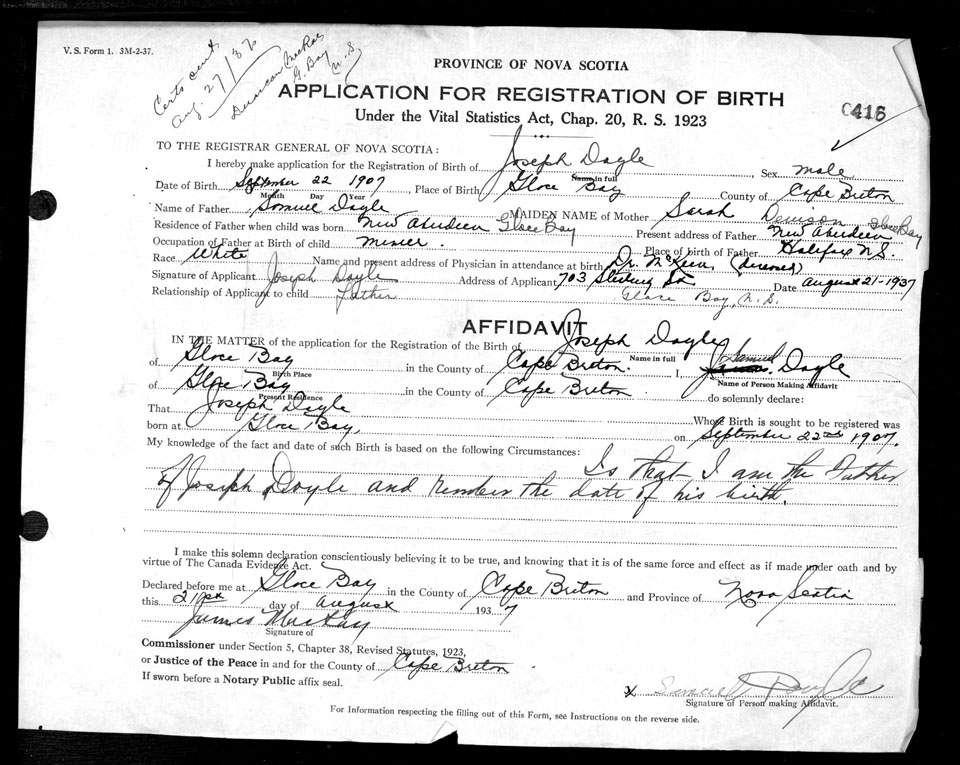 V. S. Form 1. 3M-2-37.
Certs sent
Aug. 27/37
Duncan McRae
G. Bay
N. S.
PROVINCE OF NOVA SCOTIA
APPLICATION FOR REGISTRATION OF BIRTH
Under the Vital Statistics Act, Chap. 20, R. S. 1923
C416
TO THE REGISTRAR GENERAL OF NOVA SCOTIA:
I hereby make application for the Registration of Birth of Joseph Doyle Sex male
Name in full
Date of Birth September 22 1907, Place of Birth Glace Bay County of Cape Breton
Month Day Year
Name of Father Samuel Doyle MAIDEN NAME of Mother Sarah Denison
Residence of Father when child was born New Aberdeen Glace Bay Present address of Father New Aberdeen Glace Bay
Occupation of Father at Birth of child minier. Place of birth of Father Halifax N.S.
Race White Name and present address of Physician in attendance at birth Dr. McKeen (deceased)
Signature of Applicant Joseph Doyle Address of Applicant 703 Sterling Date August 21-1937
Relationship of Applicant to child Father Glace Bay, N. S.
AFFIDAVIT
IN THE MATTER of the application for the Registration of the Birth of Joseph Doyle
Name in full
of Glace Bay in the County of Cape Breton. I, Samuel Doyle
Birth Place Name of Person Making Affidavit
of Glace Bay in the County of Cape Breton. do solemnly declare:
Present Residence
That Joseph Doyle Whose Birth is sought to be registered was
born at Glace Bay, on September 22nd 1907.
My knowledge of the fact and date of such Birth is based on the following Circumstances:
Is that I am the Father
of Joseph Doyle and rember the date of his birth.
I make this solemn declaration conscientiously believing it to be true, and knowing that it is of the same force and effect as if made under oath and by
virtue of The Canada Evidence Act.
Declared before me at Glace Bay in the County of Cape Breton and Province of Nova Scotia
this 21st day of August 1937
James MacKay
Signature of
Commissioner under Section 5, Chapter 38, Revised Statutes, 1923,
or Justice of the Peace in and for the County of Cape Breton.
If sworn before a Notary Public affix seal.
X Samuel Doyle
Signature of Person making Affidavit.
For Information respecting the filling out of this Form, see Instructions on the reverse side.